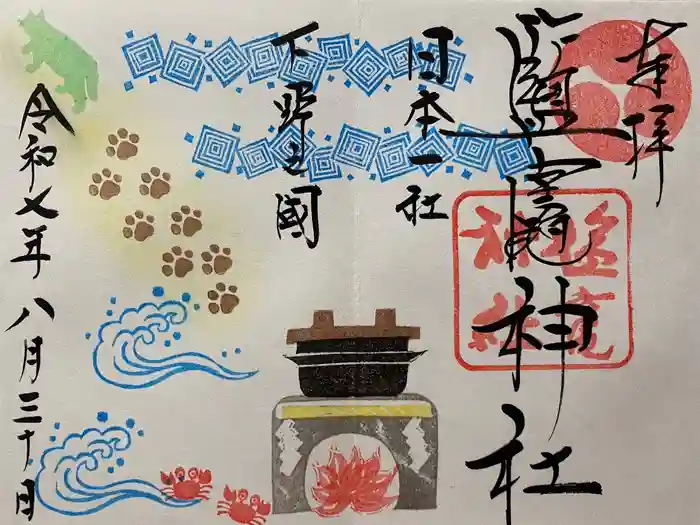 奉拝
鹽竈神社
日本一社
下野之國
令和七年八月三十日
塩竈
神社